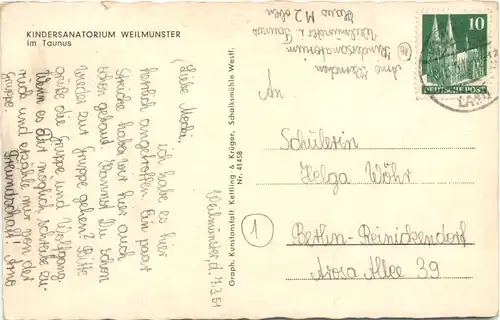 KINDERSANATORIUM WEILMÜNSTER
im Taunus
Weilmünster, d. 7.3.51
Liebe Mecki,
ich habe es hier
herrlich angetroffen. Ein paar
Streiche haben wir hier auch
schon gebaut. Kannst Du schon
wieder zur Gruppe gehen? Bitte
grüße die Gruppe und Wolfgang.
Wenn es Dir möglich schreibe zu-
rück und erzähle mir von der
Gruppe.
Freundschaft! Arno
Graph. Kunstanstalt Kettling & Krüger, Schalksmühle Westf.
Nr. 41458
Arno
Kindersanatorium
Weilmünster i. Taunus
Haus M 2 oben
10
DEUTSCHE POST
An
Schülerin
Helga Wöhr
1
Berlin-Reinickendorf
Arosa Allee 39